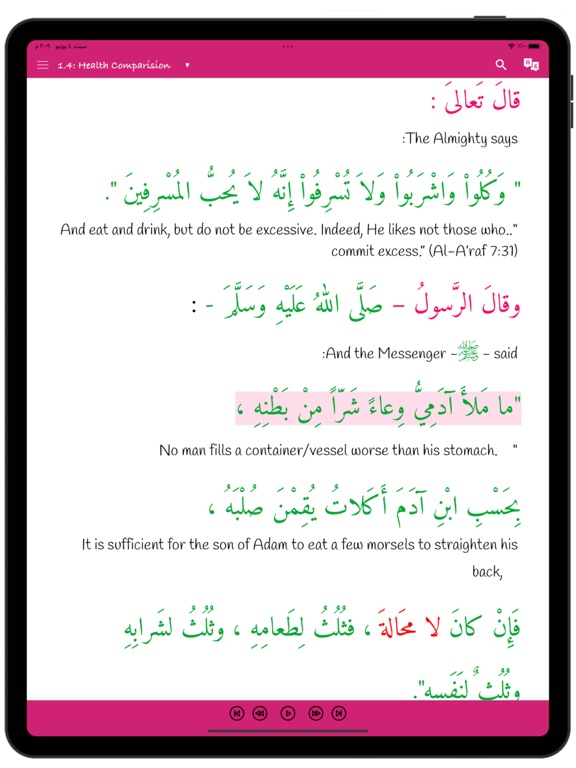 سبت ٤ يونيو ٣:٠٩ م
1.4: Health Comparision
قالَ تَعالىَ :
:The Almighty says
" وَكُلُواْ وَاشْرَبُواْ وَلاَ تُسْرِفُواْ إِنَّهُ لاَ يُحبُّ المُسْرِفِينَ ".
And eat and drink, but do not be excessive. Indeed, He likes not those who.."
commit excess." (Al-A'raf 7:31)
وقالَ الرَّسولُ – صَلَّى اللهُ عَلَيْهِ وَسَلَّمَ - :
:And the Messenger -ﷺ - said
"ما مَلأَ آدَمِيُّ وِعاءً شَرّاً مِنْ بَطْنِهِ ،
No man fills a container/vessel worse than his stomach. "
بِحَسْبِ ابْنِ آدَمَ أَكَلاتُ يُقِمْنَ صُلْبَهُ ،
It is sufficient for the son of Adam to eat a few morsels to straighten his
back,
فَإِنْ كانَ لا محَالةَ ، فثُلُثُ لِطَعامِهِ ، وثُلُثُ لشَرابِهِ
وثُلُثٌ لنَفَسِه".